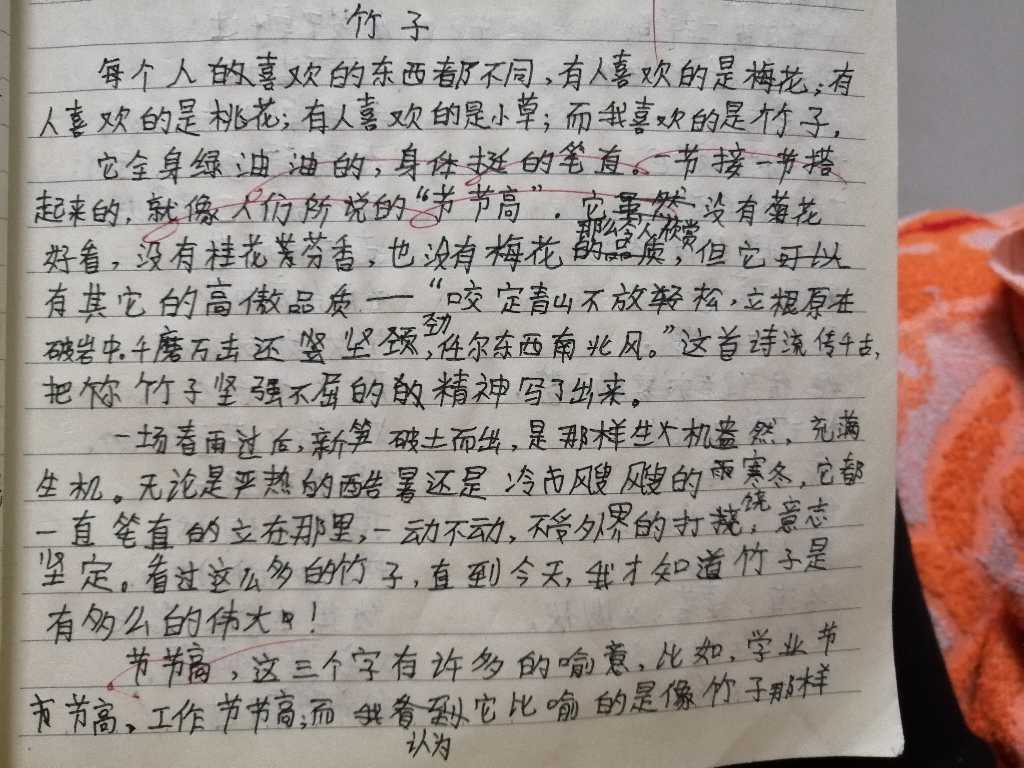 竹子
每个人的喜欢的东西都不同,有人喜欢的是梅花;有
人喜欢的是桃花;有人喜欢的是小草;而我喜欢的是竹子,
它全身绿油油的,身体挺的笔直。一节接一节搭
起来的,就像人们所说的“节节高”.它虽然没有菊花
那么令人欣赏
好看,没有桂花芬香,也没有梅花的品质,但它可以
有其它的高傲品质——“咬定青山不放轻松,立根原在
劲
破岩中.千磨万击还坚颈,任尔东西南北风。”这首诗流传千古,
把你竹子坚强不屈的的精神写了出来。
一场春雨过后,新笋破土而出,是那样生机盎然,充满
生机。无论是严热的酷暑还是冷雨飕飕的寒冬,它都
一直笔直的立在那里,一动不动,不受外界的打挠,意志
饶
坚定。看过这么多的竹子,直到今天,我才知道竹子是
有多么的伟大!
节节高,这三个字有许多的喻意,比如,学业节
节节高、工作节节高;而我看到它比喻的是像竹子那样
认为